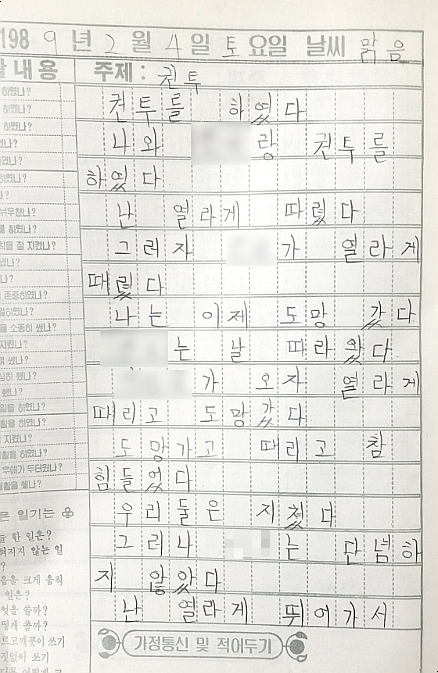 198 9 년 2 월 4 일 토 요일 날씨 맑음
활 내용 주제 : 권투
권투를 하였다
나와 랑 권투를
하였다
난 열라게 때렸다
그러자 가 열라게
때렸다
나는 이제 도망 갔다
는 날 따라왔다
가 오자 열라게
때리고 도망갔다
도망가고 때리고 참
힘들었다
우리둘은 지쳤다
그러나 는 단념하
지 않았다
난 열라게 뛰어가서
가정통신 및 적어두기
하였나?
하였나?
하였나?
썼나?
였나?
하였나?
나?
뉘우쳤나?
를 하였나?
칙을 잘 지켰나?
했나?
나?
존중하였나?
일하였나?
을 소중히 썼나?
지켰나?
며 썼나?
심히 했나?
했나?
일을 하였나?
활을 하였나?
지켰나?
활을 하였나?
우애가 두터웠나?
생활을 했나?
은 일기는
한 일은?
혀지지 않는 일
?
음을 크게 움직
일은?
엇을 쓸까?
떻게 쓸까?
르고깨끗이 쓰기
짓없이 쓰기